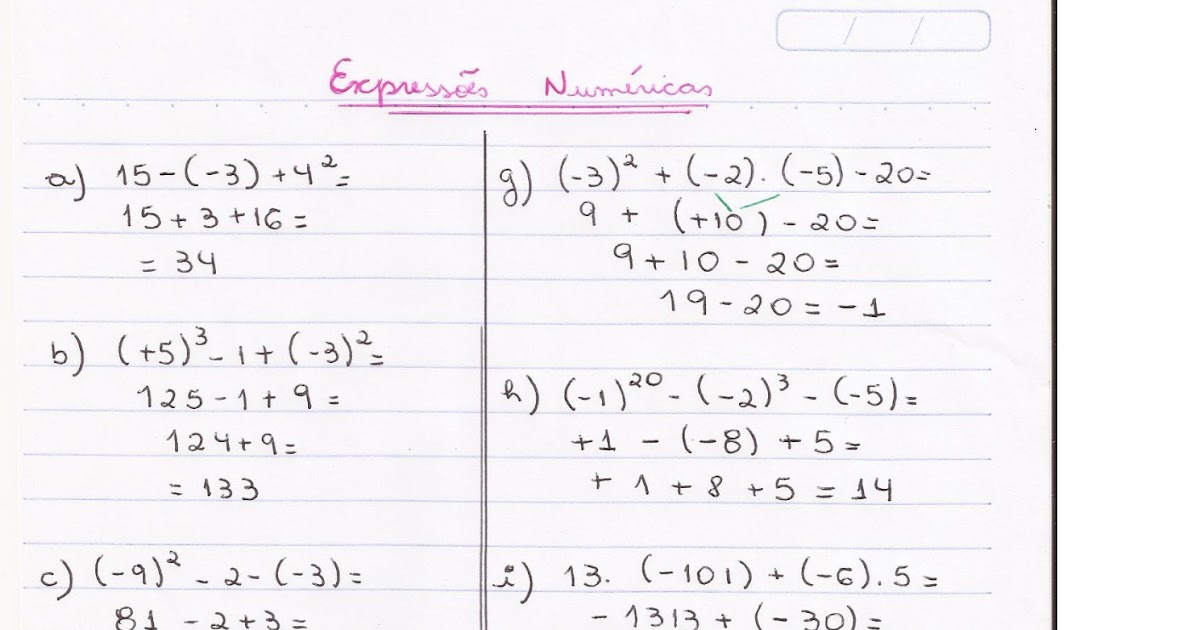 Expressões Numéricas
a) 15-(-3)+4²=
15+3+16=
= 34
b) (+5)³-1+(-3)²=
125-1+9=
124+9=
= 133
c) (-9)²-2-(-3)=
81-2+3=
g) (-3)²+(-2).(-5)-20=
9+(+10)-20=
9+10-20=
19-20=-1
h) (-1)²⁰-(-2)³-(-5)=
+1-(-8)+5=
+1+8+5=14
i) 13.(-101)+(-6).5=
-1313+(-30)=